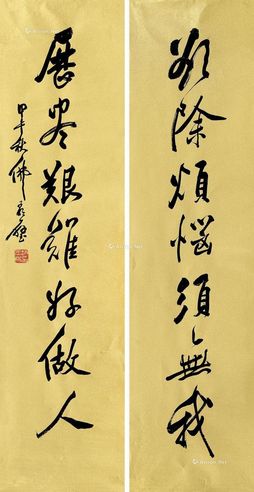 欲除煩惱須無我
歷盡艱難好做人
甲午秋佛